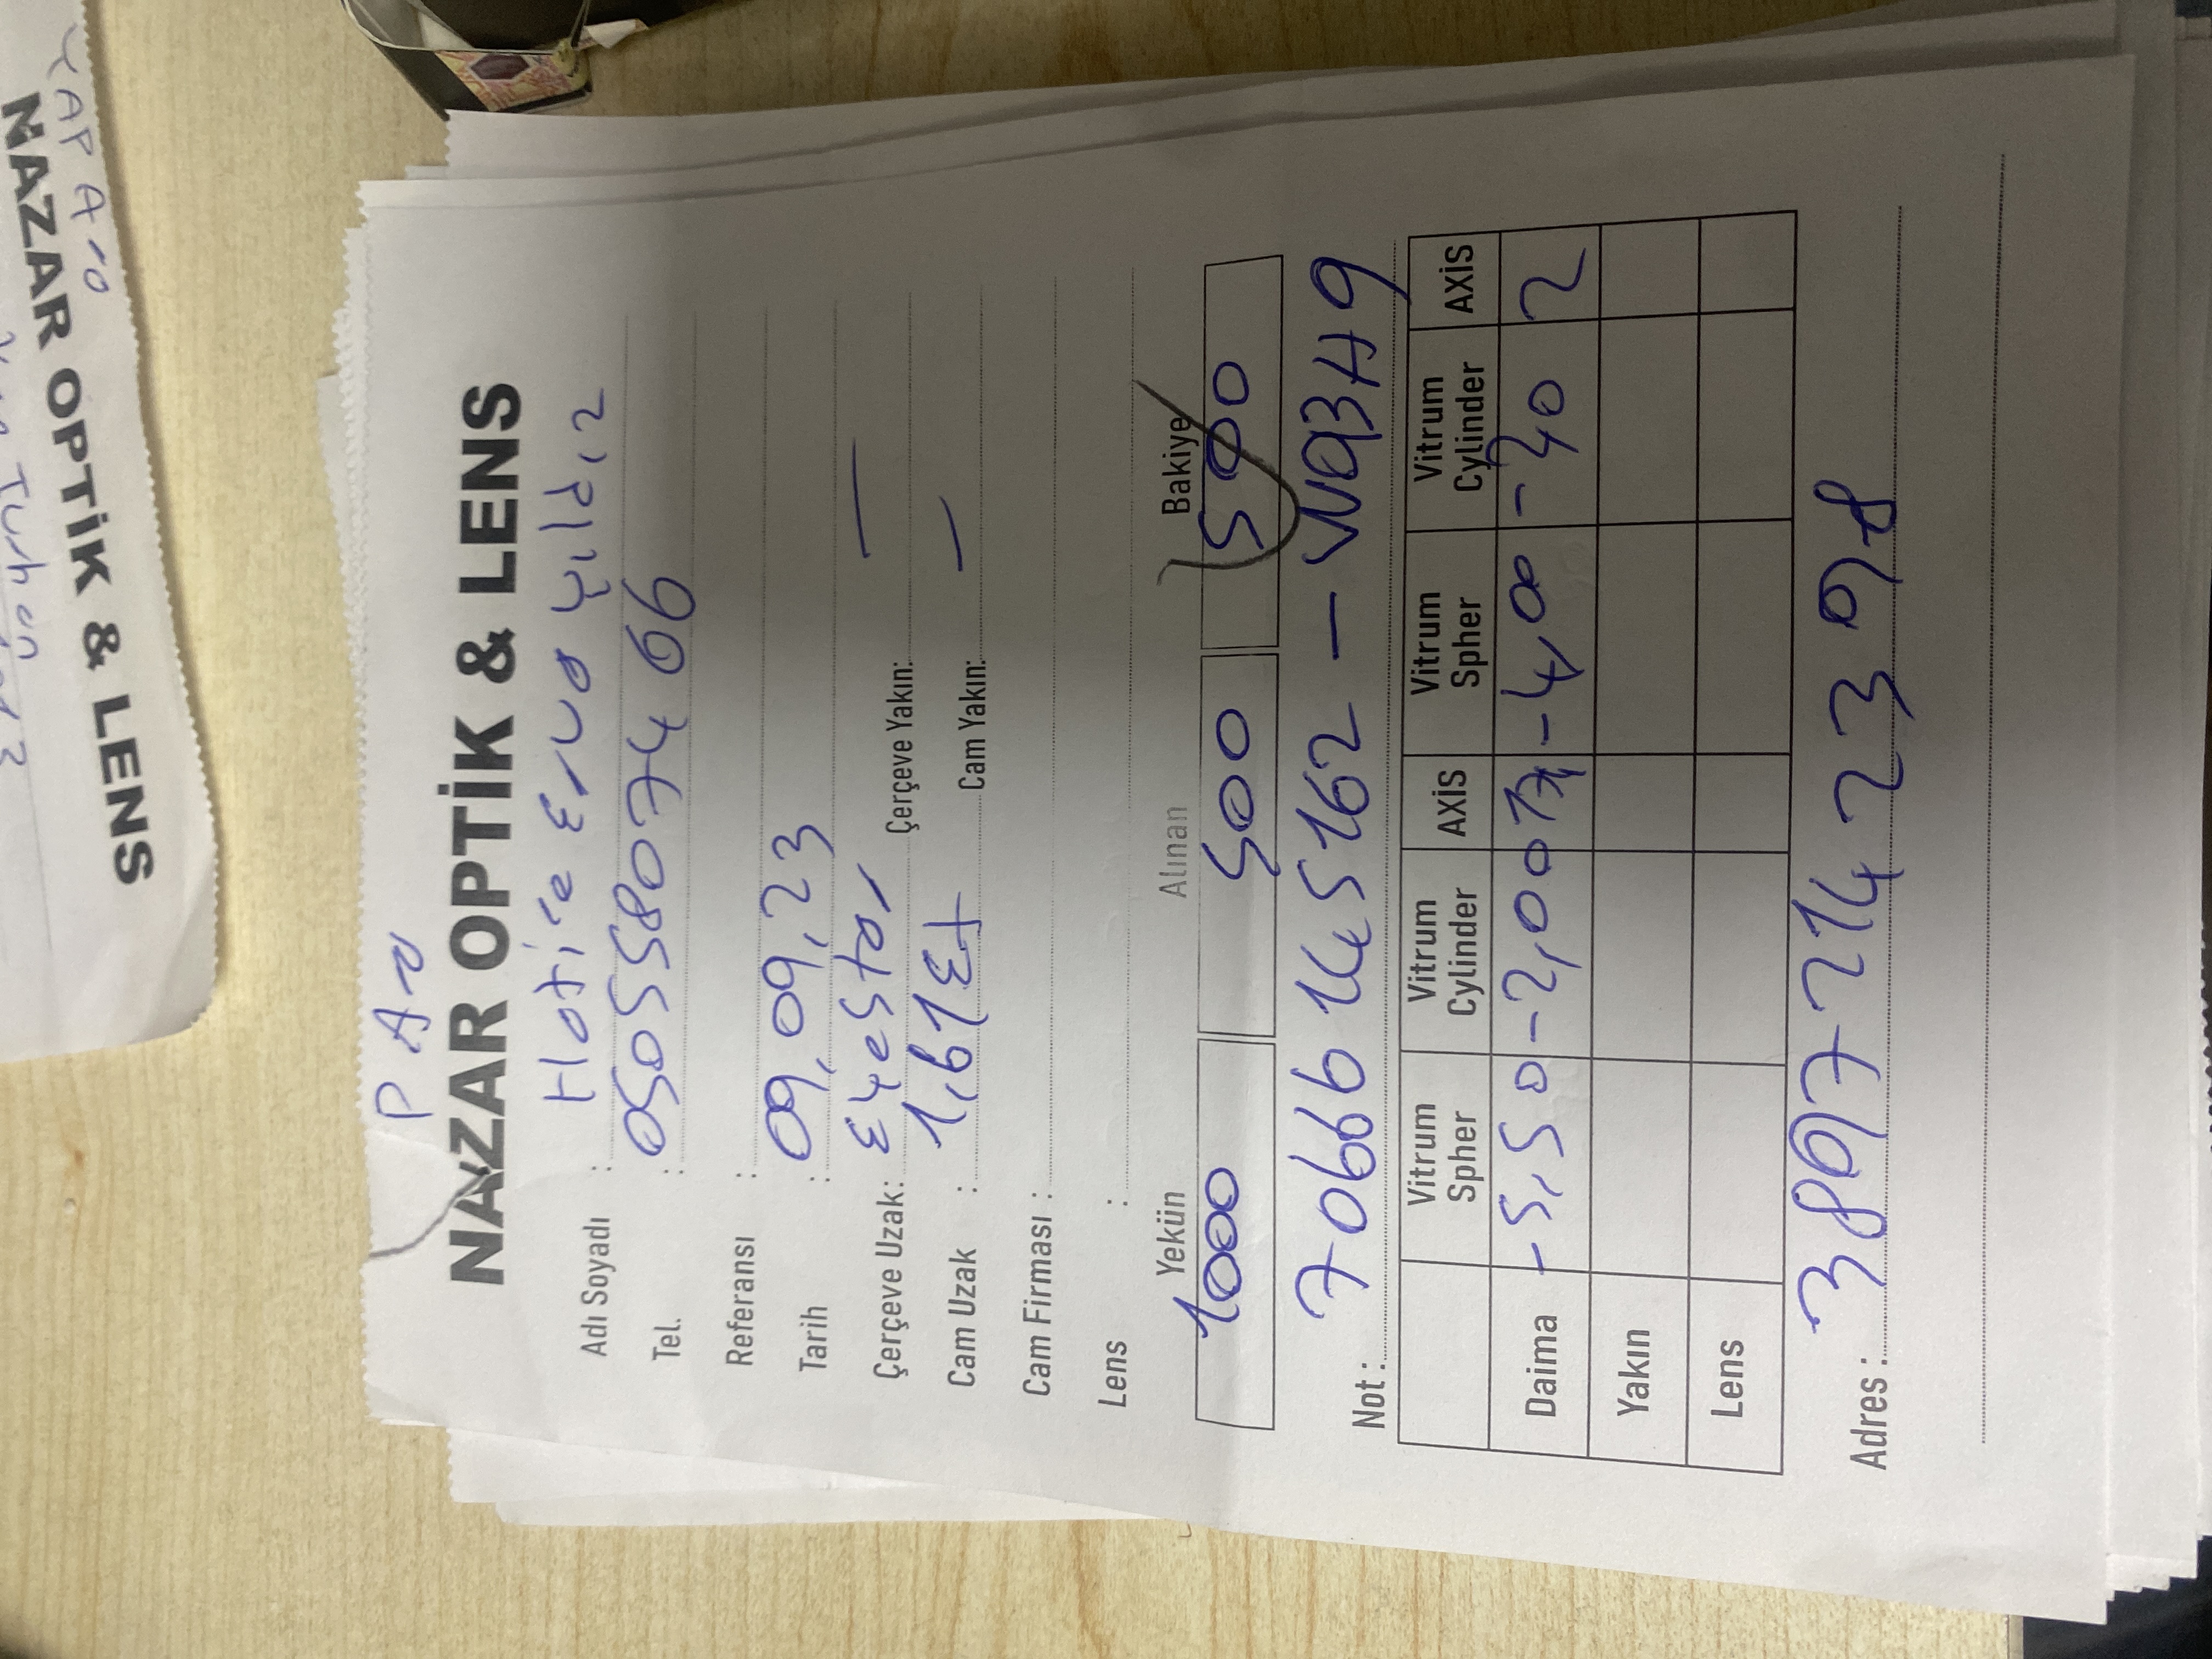 NAZAR OPTİK & LENS
Turhan
NAZAR OPTİK & LENS
Adı Soyadı : Hatice Erva Yıldız
Tel. : 05055807466
Referansı :
Tarih : 09,09,23
Çerçeve Uzak: Çerçeve Yakın: —
Cam Uzak : Cam Yakın: —
Cam Firması :
Lens :
Yekün Alınan Bakiye
1000 500 500
Not : 70666145162 - W93H9
Vitrum Spher Vitrum Cylinder AXİS Vitrum Spher Vitrum Cylinder AXİS
Daima -5,50 -2,00 -4,00 2
Yakın
Lens
Adres : 38972142398